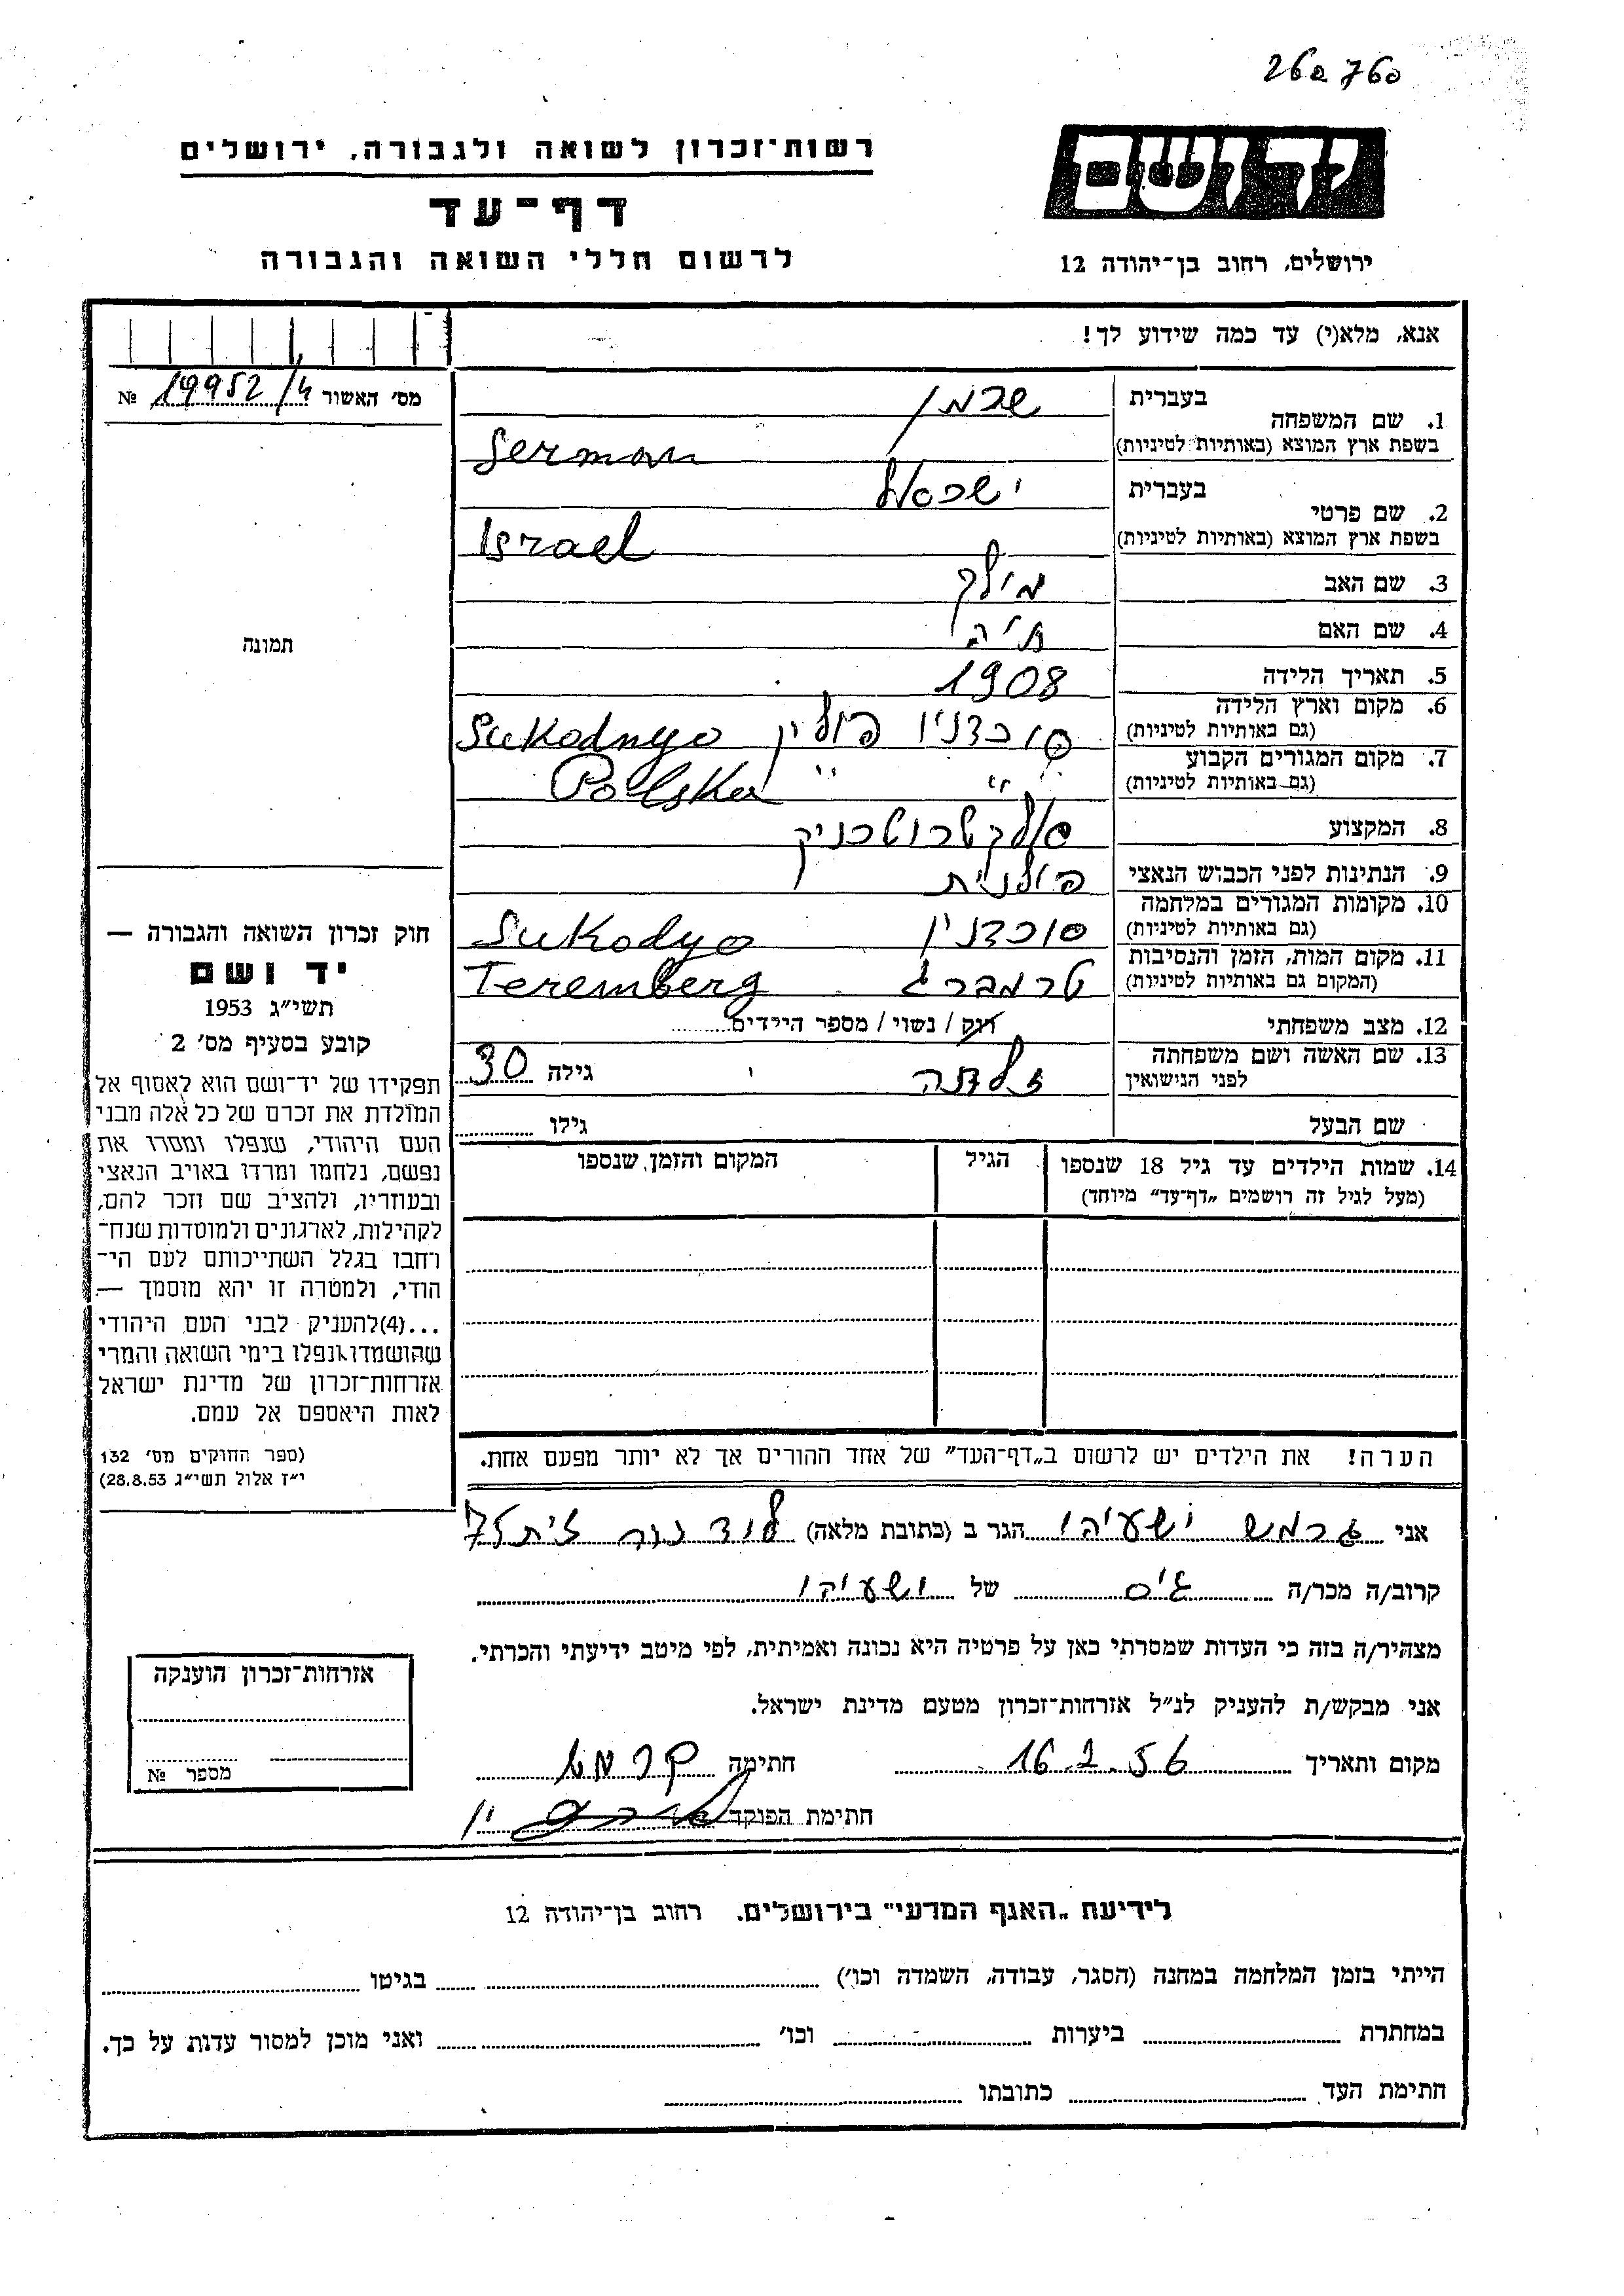 260 760
רשות־זכרון לשואה ולגבורה, ירושלים
דף־עד
לרשום חללי השואה והגבורה
ידושם
ירושלים, רחוב בן־יהודה 12
אנא, מלא(י) עד כמה שידוע לך!
מס׳ האשור 19952/4 №
תמונה
חוק זכרון השואה והגבורה —
יד ושם
תשי״ג 1953
קובע בסעיף מס׳ 2
תפקידו של יד־ושם הוא לאסוף אל
המולדת את זכרם של כל אלה מבני
העם היהודי, שנפלו ומסרו את
נפשם, נלחמו ומרדו באויב הנאצי
ובעוזריו, ולהציב שם וזכר להם,
לקהילות, לארגונים ולמוסדות שנח־
רחבו בגלל השתייכותם לעם הי־
הודי, ולמטרה זו יהא מוסמך —
...(4)להעניק לבני העם היהודי
שהושמדו ונפלו בימי השואה והמרי
אזרחות־זכרון של מדינת ישראל
לאות היאספם אל עמם.
(ספר החוקים מס׳ 132
י״ז אלול תשי״ג 28.8.53)
בעברית שרמן
1. שם המשפחה
בשפת ארץ המוצא (באותיות לטיניות) Serman
בעברית ישראל
2. שם פרטי
בשפת ארץ המוצא (באותיות לטיניות) Israel
3. שם האב מילך
4. שם האם חיה
5. תאריך הלידה 1908
6. מקום וארץ הלידה
(גם באותיות לטיניות) סוכדניו פולין Sukodnyo
7. מקום המגורים הקבוע
(גם באותיות לטיניות) " " Polska
8. המקצוע אלקטרוטכניק
9. הנתינות לפני הכבוש הנאצי פולנית
10. מקומות המגורים במלחמה
(גם באותיות לטיניות) סוכדניו Sukodyo
11. מקום המות, הזמן והנסיבות
(המקום גם באותיות לטיניות) טרמברג Teremberg
12. מצב משפחתי רוק / נשוי / מספר הילדים
13. שם האשה ושם משפחתה
לפני הנישואין זלדה גילה 30
שם הבעל גילו
14. שמות הילדים עד גיל 18 שנספו הגיל המקום והזמן שנספו
(מעל לגיל זה רושמים „דף־עד״ מיוחד)
הערה! את הילדים יש לרשום ב„דף־העד״ של אחד ההורים אך לא יותר מפעם אחת.
אני גרמש ישעיהו הגר ב (כתובת מלאה) לוד
קרוב/ה מכר/ה גיס של ישעיהו
מצהיר/ה בזה כי העדות שמסרתי כאן על פרטיה היא נכונה ואמיתית, לפי מיטב ידיעתי והכרתי.
אני מבקש/ת להעניק לנ״ל אזרחות־זכרון מטעם מדינת ישראל.
מקום ותאריך 16.2.56 חתימה
חתימת הפוקד
אזרחות־זכרון הוענקה
מספר №
לידיעת „האגף המדעי״ בירושלים. רחוב בן־יהודה 12
הייתי בזמן המלחמה במחנה (הסגר, עבודה, השמדה וכו׳) בגיטו
במחתרת ביערות וכו׳ ואני מוכן למסור עדות על כך.
חתימת העד כתובתו